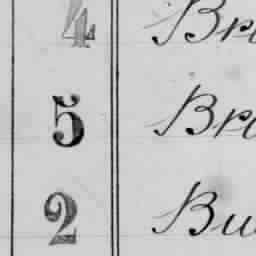 4 Bro
5 Bro
2 Bu